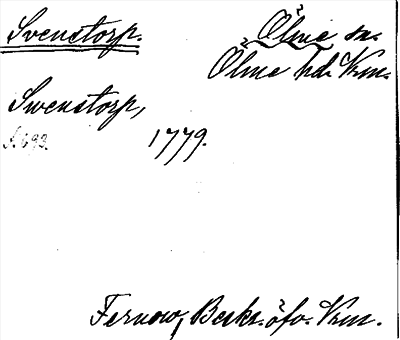 Svenstorp. Ölme sn.
Ölme hd. Vrm.
Swenstorp,
S. 693. 1779.
Fernow, Beskr. öfv. Vrm.